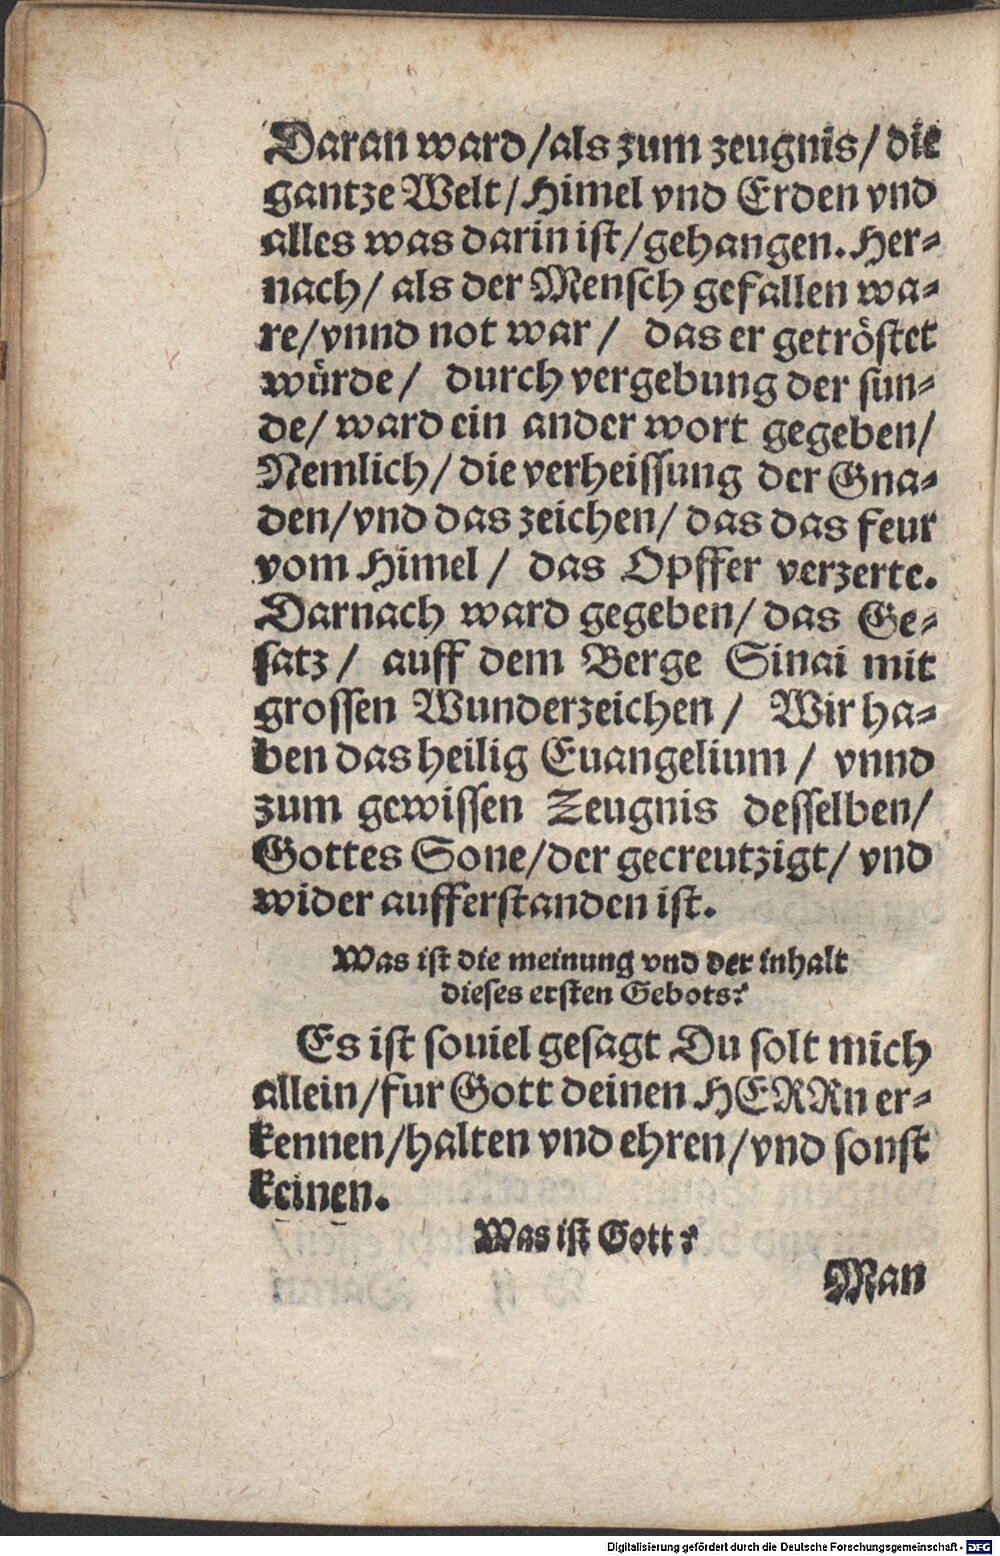 Daran ward/als zum zeugnis/die
gantze Welt/Himel vnd Erden vnd
alles was darin ist/gehangen. Her-
nach/ als der Mensch gefallen wa-
re/vnnd not war/ das er getröstet
würde/ durch vergebung der sun-
de/ ward ein ander wort gegeben/
Nemlich/ die verheissung der Gna-
den/vnd das zeichen/ das das feur
vom Himel/ das Opffer verzerte.
Darnach ward gegeben/ das Ge-
satz/ auff dem Berge Sinai mit
grossen Wunderzeichen/ Wir ha-
ben das heilig Euangelium/ vnnd
zum gewissen Zeugnis desselben/
Gottes Sone/der gecreutzigt/ vnd
wider aufferstanden ist.
Was ist die meinung vnd der inhalt
dieses ersten Gebots?
Es ist souiel gesagt Du solt mich
allein/fur Gott deinen HERRn er-
kennen/halten vnd ehren/vnd sonst
keinen.
Was ist Gott?
Man
Digitalisierung gefördert durch die Deutsche Forschungsgemeinschaft - DFG